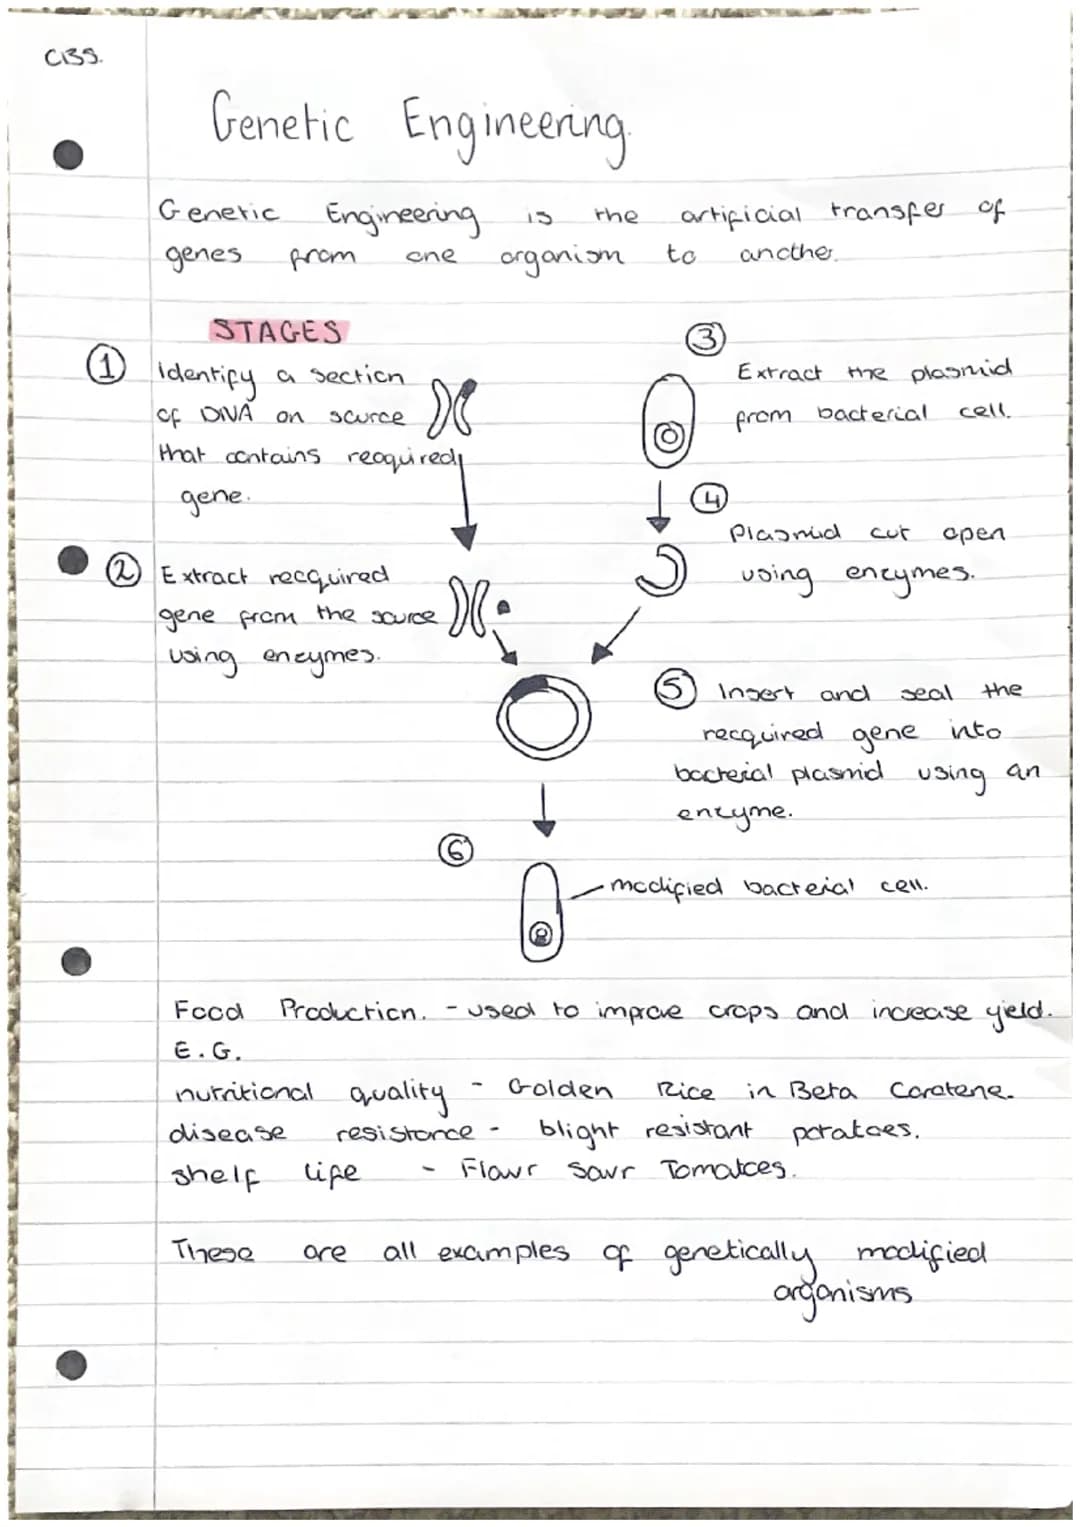 CBSS.
Genetic Engineering.
Genetic Engineering is the artificial transfer of
genes from one organism to another.
STAGES
1 identify a section
of DNA on source
that contains reoquired
gene.
2 Extract recquired
gene from the source
using enzymes.
3
Extract the plasmid
from bacterial cell.
4
Plasmid cut open
using enzymes.
5 Insert and seal the
recquired gene into
bacterial plasmid using an
enzyme.
6
modified bacterial cell.
Food Production. - used to improve crops and increase yield.
E.G.
nutritional quality - Golden Rice in Beta Carotene.
disease resistance - blight resistant potatoes.
shelf life - Flavr Savr Tomatoes.
These are all examples of genetically modified
organisms